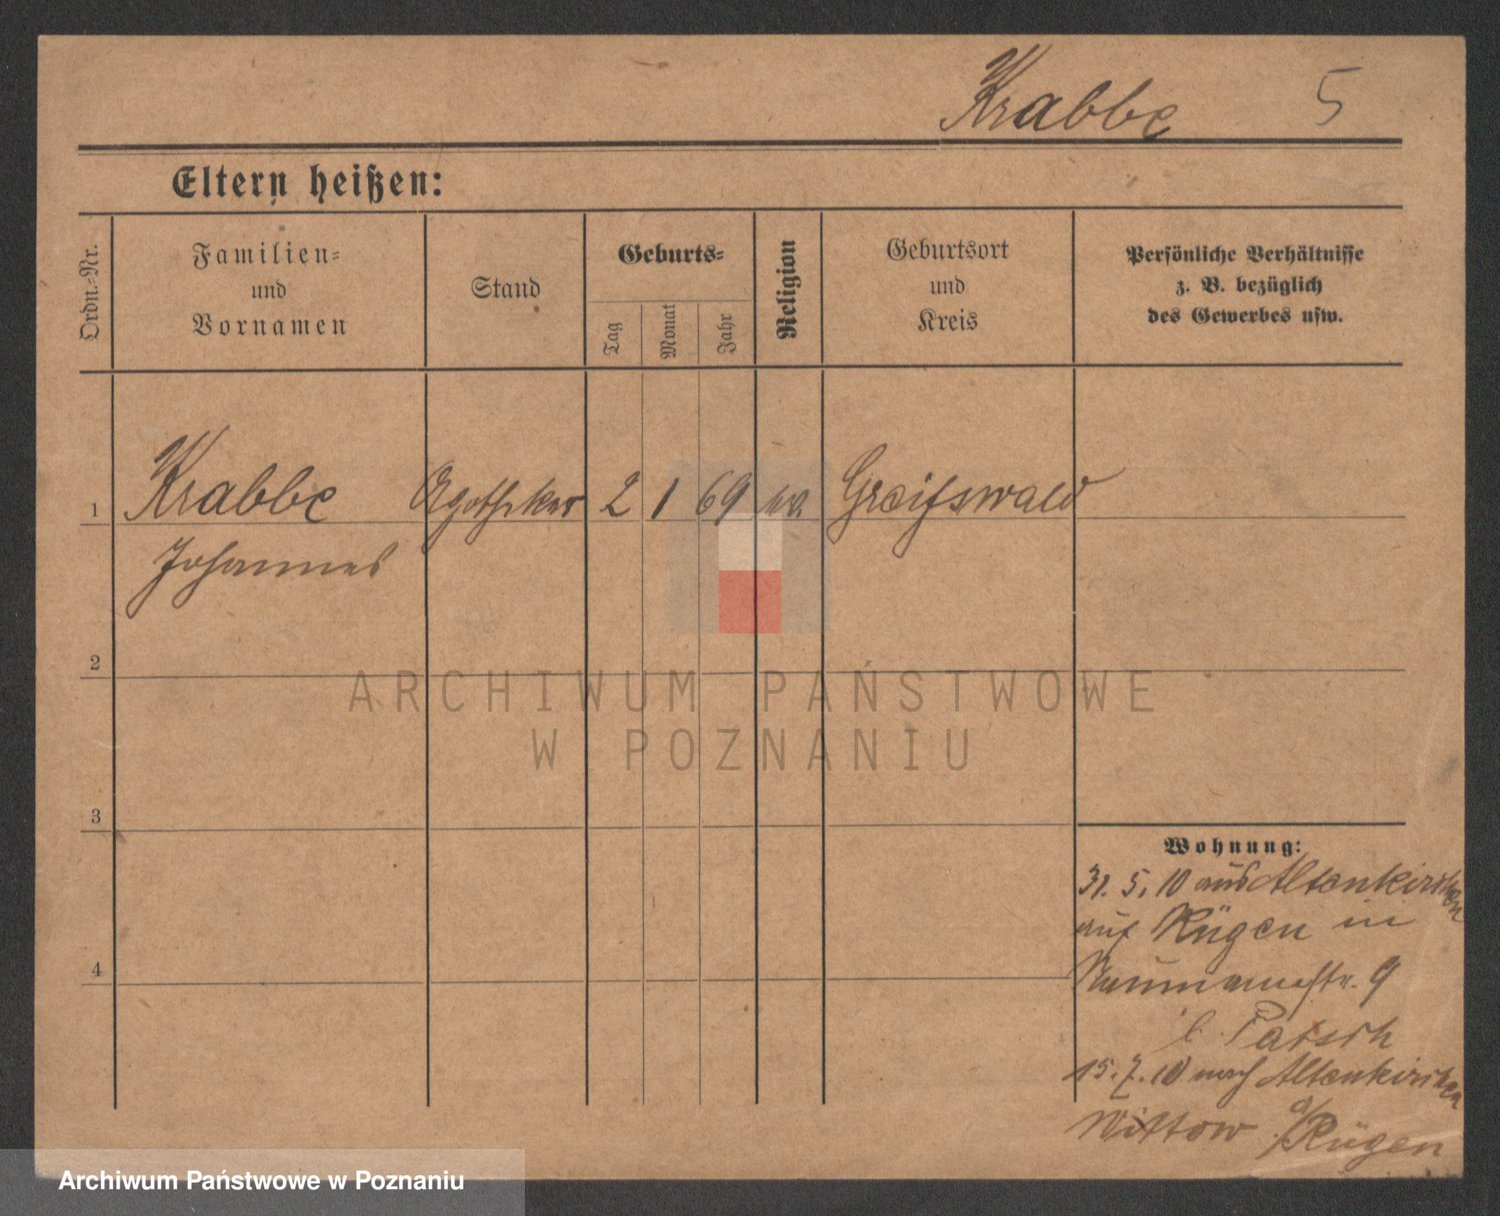 Krabbe 5
Eltern heißen:
Ordn.-Nr.
Familien-
und
Vornamen
Stand
Geburts-
Tag
Monat
Jahr
Religion
Geburtsort
und
Kreis
Persönliche Verhältnisse
z. B. bezüglich
des Gewerbes usw.
1 Krabbe Apotheker 2 1 69 ev. Greifswald
Johannes
2
3
4
Wohnung:
31. 5. 10 aus Altenkirchen
auf Rügen in
Naumannstr. 9
b. Patsch
15. 7. 10 nach Altenkirchen
Wittow a/Rügen
ARCHIWUM PAŃSTWOWE
W POZNANIU
Archiwum Państwowe w Poznaniu